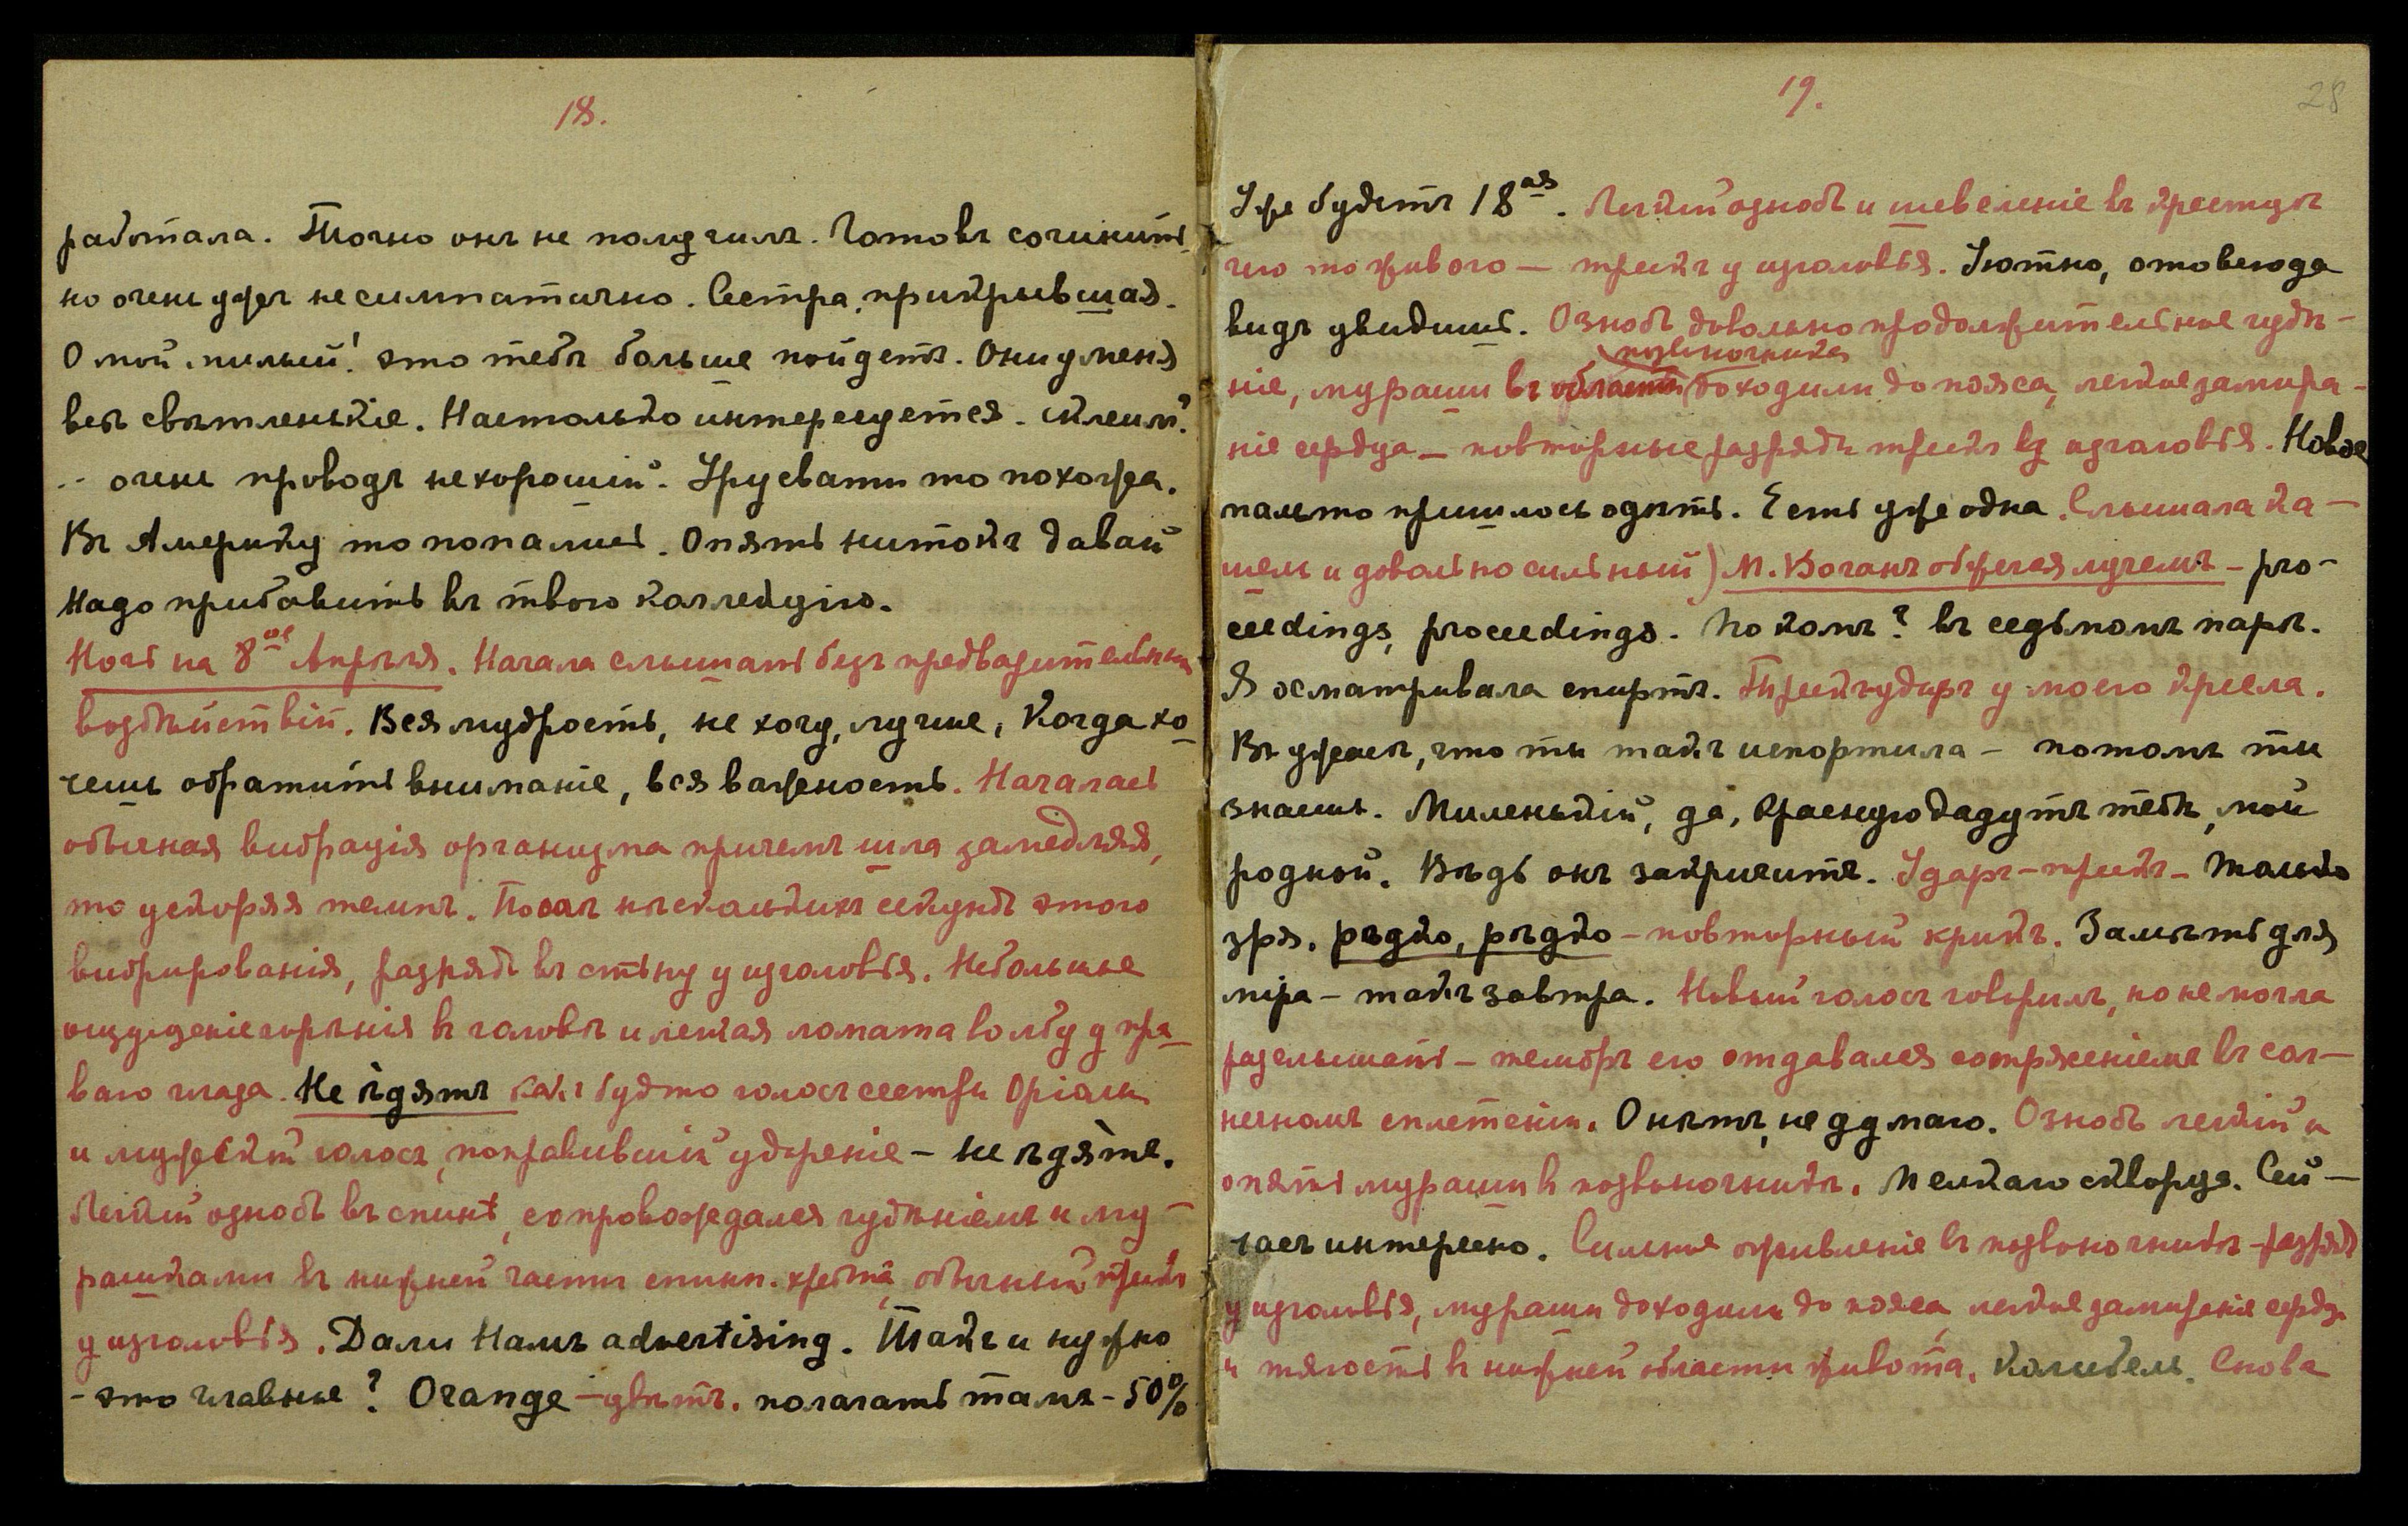 18.
работала. Точно онъ не получилъ. Готовъ сочинить
но очень ужъ несимпатично. Сестра, прикрывшая.
О мой милый! это тебѣ больше пойдетъ. Они у меня
всѣ свѣтленькіе. Настолько интересуется.
.. очень проводъ нехорошій. Грусвами то похожа.
Въ Америку то попались. Опять нитокъ давай
Надо прибавить въ твою коллекцію.
Ночь на 8ое Апрѣля. Начала слышать безъ предварительныхъ
воздѣйствій. Вся мудрость, не хочу, лучше, Когда хо-
чешь обратить вниманіе, вся важность. Началась
обычная вибрація организма причемъ шла замедляя,
то ускоряя темпъ. Послѣ нѣсколькихъ секундъ этого
вибрированія, разрядъ въ стѣну у изголовья. Небольшое
ощущеніе горѣнія въ головѣ и легкая ломота во лбу у пра-
ваго глаза. Не ѣдятъ какъ будто голосъ сестры Оріолы
и мужской голосъ, поправившій удареніе – не ѣдя́тъ.
Легкій ознобъ въ спинѣ, сопровождался гудѣніемъ и му-
рашками въ нижней части спинн. хребта, обычный трескъ
у изголовья. Дали Намъ advertising. Такъ и нужно
- это главное? Orange – цвѣтъ. полагать тамъ – 50%
19.
28
Уже будетъ 18ая. Легкій ознобъ и шевеленіе въ крестцѣ
чего то живого – трескъ у изголовья. Уютно, отовсюда
видъ увидишь. Ознобъ, довольно продолжительное гудѣ-
позвоночника
ніе, мураши въ области доходили до пояса, легкое замира-
ніе сердца – повторные разряды трескъ въ изголовья. Новое
пальто пришлось одѣть. Есть уже одна. Слышала ка-
шель и довольно сильный) М. Воганъ обжегая лучемъ – pro-
ceedings, proceedings. По комъ? въ седьмомъ парѣ.
Я осматривала спиртъ. Трескъ ударъ у моего кресла.
Въ ужасѣ, что ты такъ испортила – потомъ ты
знаешь. Миленькій, да, Красную дадутъ тебѣ, мой
родной. Вѣдь онъ закричитъ. Ударъ – трескъ – только
зря. рѣдко, рѣдко – повторный крикъ. Замѣть для
міра – такъ завтра. Новый голосъ говорилъ, но не могла
разслышать – тембръ его отдавался сотрясеніемъ въ сол-
нечномъ сплетеніи. О нѣтъ, не думаю. Ознобъ легкій и
опять мураши въ позвоночникѣ. Мелкаго скворца. Сей-
часъ интересно. Сильное оживленіе въ позвоночникѣ – разрядъ
у изголовья, мураши доходили до пояса легкое замираніе сердца
и тягость въ нижней области живота. Колибель. Снова